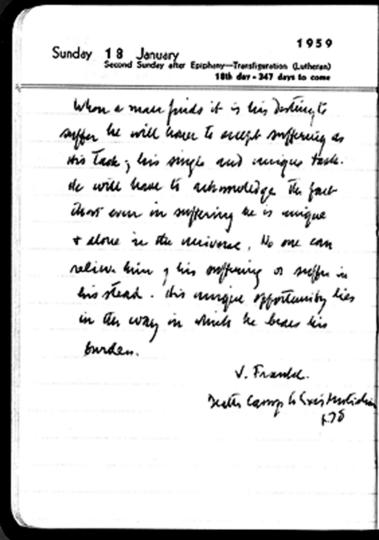 1959
Sunday 18 January
Second Sunday after Epiphany—Transfiguration (Lutheran)
18th day - 347 days to come
When a man finds it is his destiny to
suffer he will have to accept suffering as
his task; his single and unique task.
He will have to acknowledge the fact
that even in suffering he is unique
+ alone in the universe. No one can
relieve him of his suffering or suffer in
his stead. His unique opportunity lies
in the way in which he bears his
burden.
V. Frankl.
Death Camp to Existentialism
p. 78